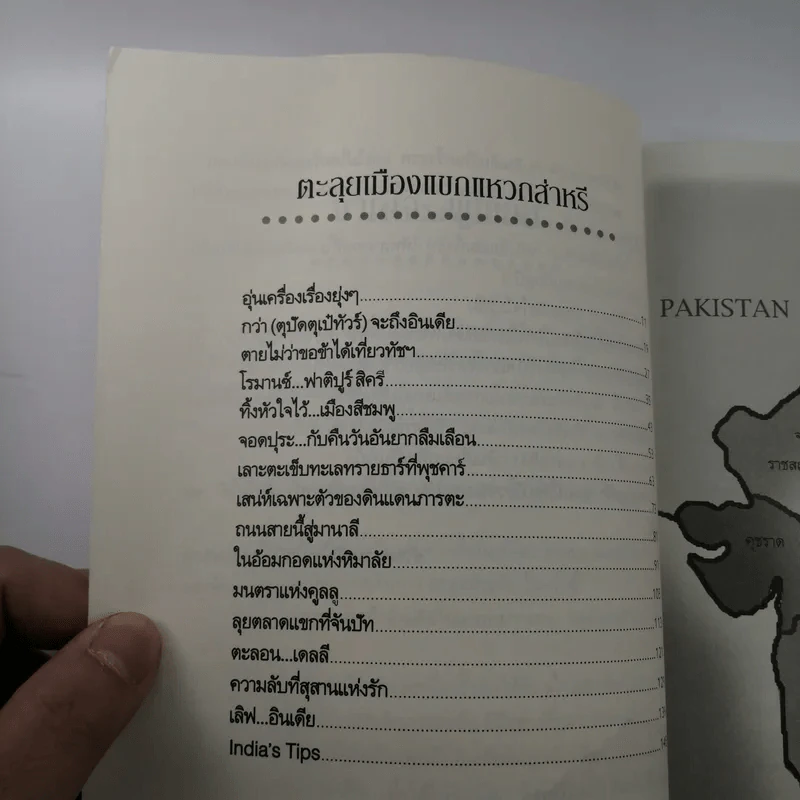 ตะลุยเมืองแขกแหวกส่าหรี
อุ่นเครื่องเรื่องยุ่งๆ 11
กว่า (ตุปัดตุเป๋ทัวร์) จะถึงอินเดีย
ตายไม่ว่าขอข้าได้เที่ยวทัชฯ
โรมานซ์...ฟาติปูร์ สิครี
ทิ้งหัวใจไว้...เมืองสีชมพู
จอดปุระ...กับคืนวันอันยากลืมเลือน 53
เลาะตะเข็บทะเลทรายธาร์ที่พุชคาร์ 63
เสน่ห์เฉพาะตัวของดินแดนภารตะ
ถนนสายนี้สู่มานาลี
ในอ้อมกอดแห่งหิมาลัย 91
มนตราแห่งคูลลู 103
ลุยตลาดแขกที่จันบัท 113
ตะลอน...เดลลี 121
ความลับที่สุสานแห่งรัก
เลิฟ...อินเดีย
India's Tips
PAKISTAN
คุชราต